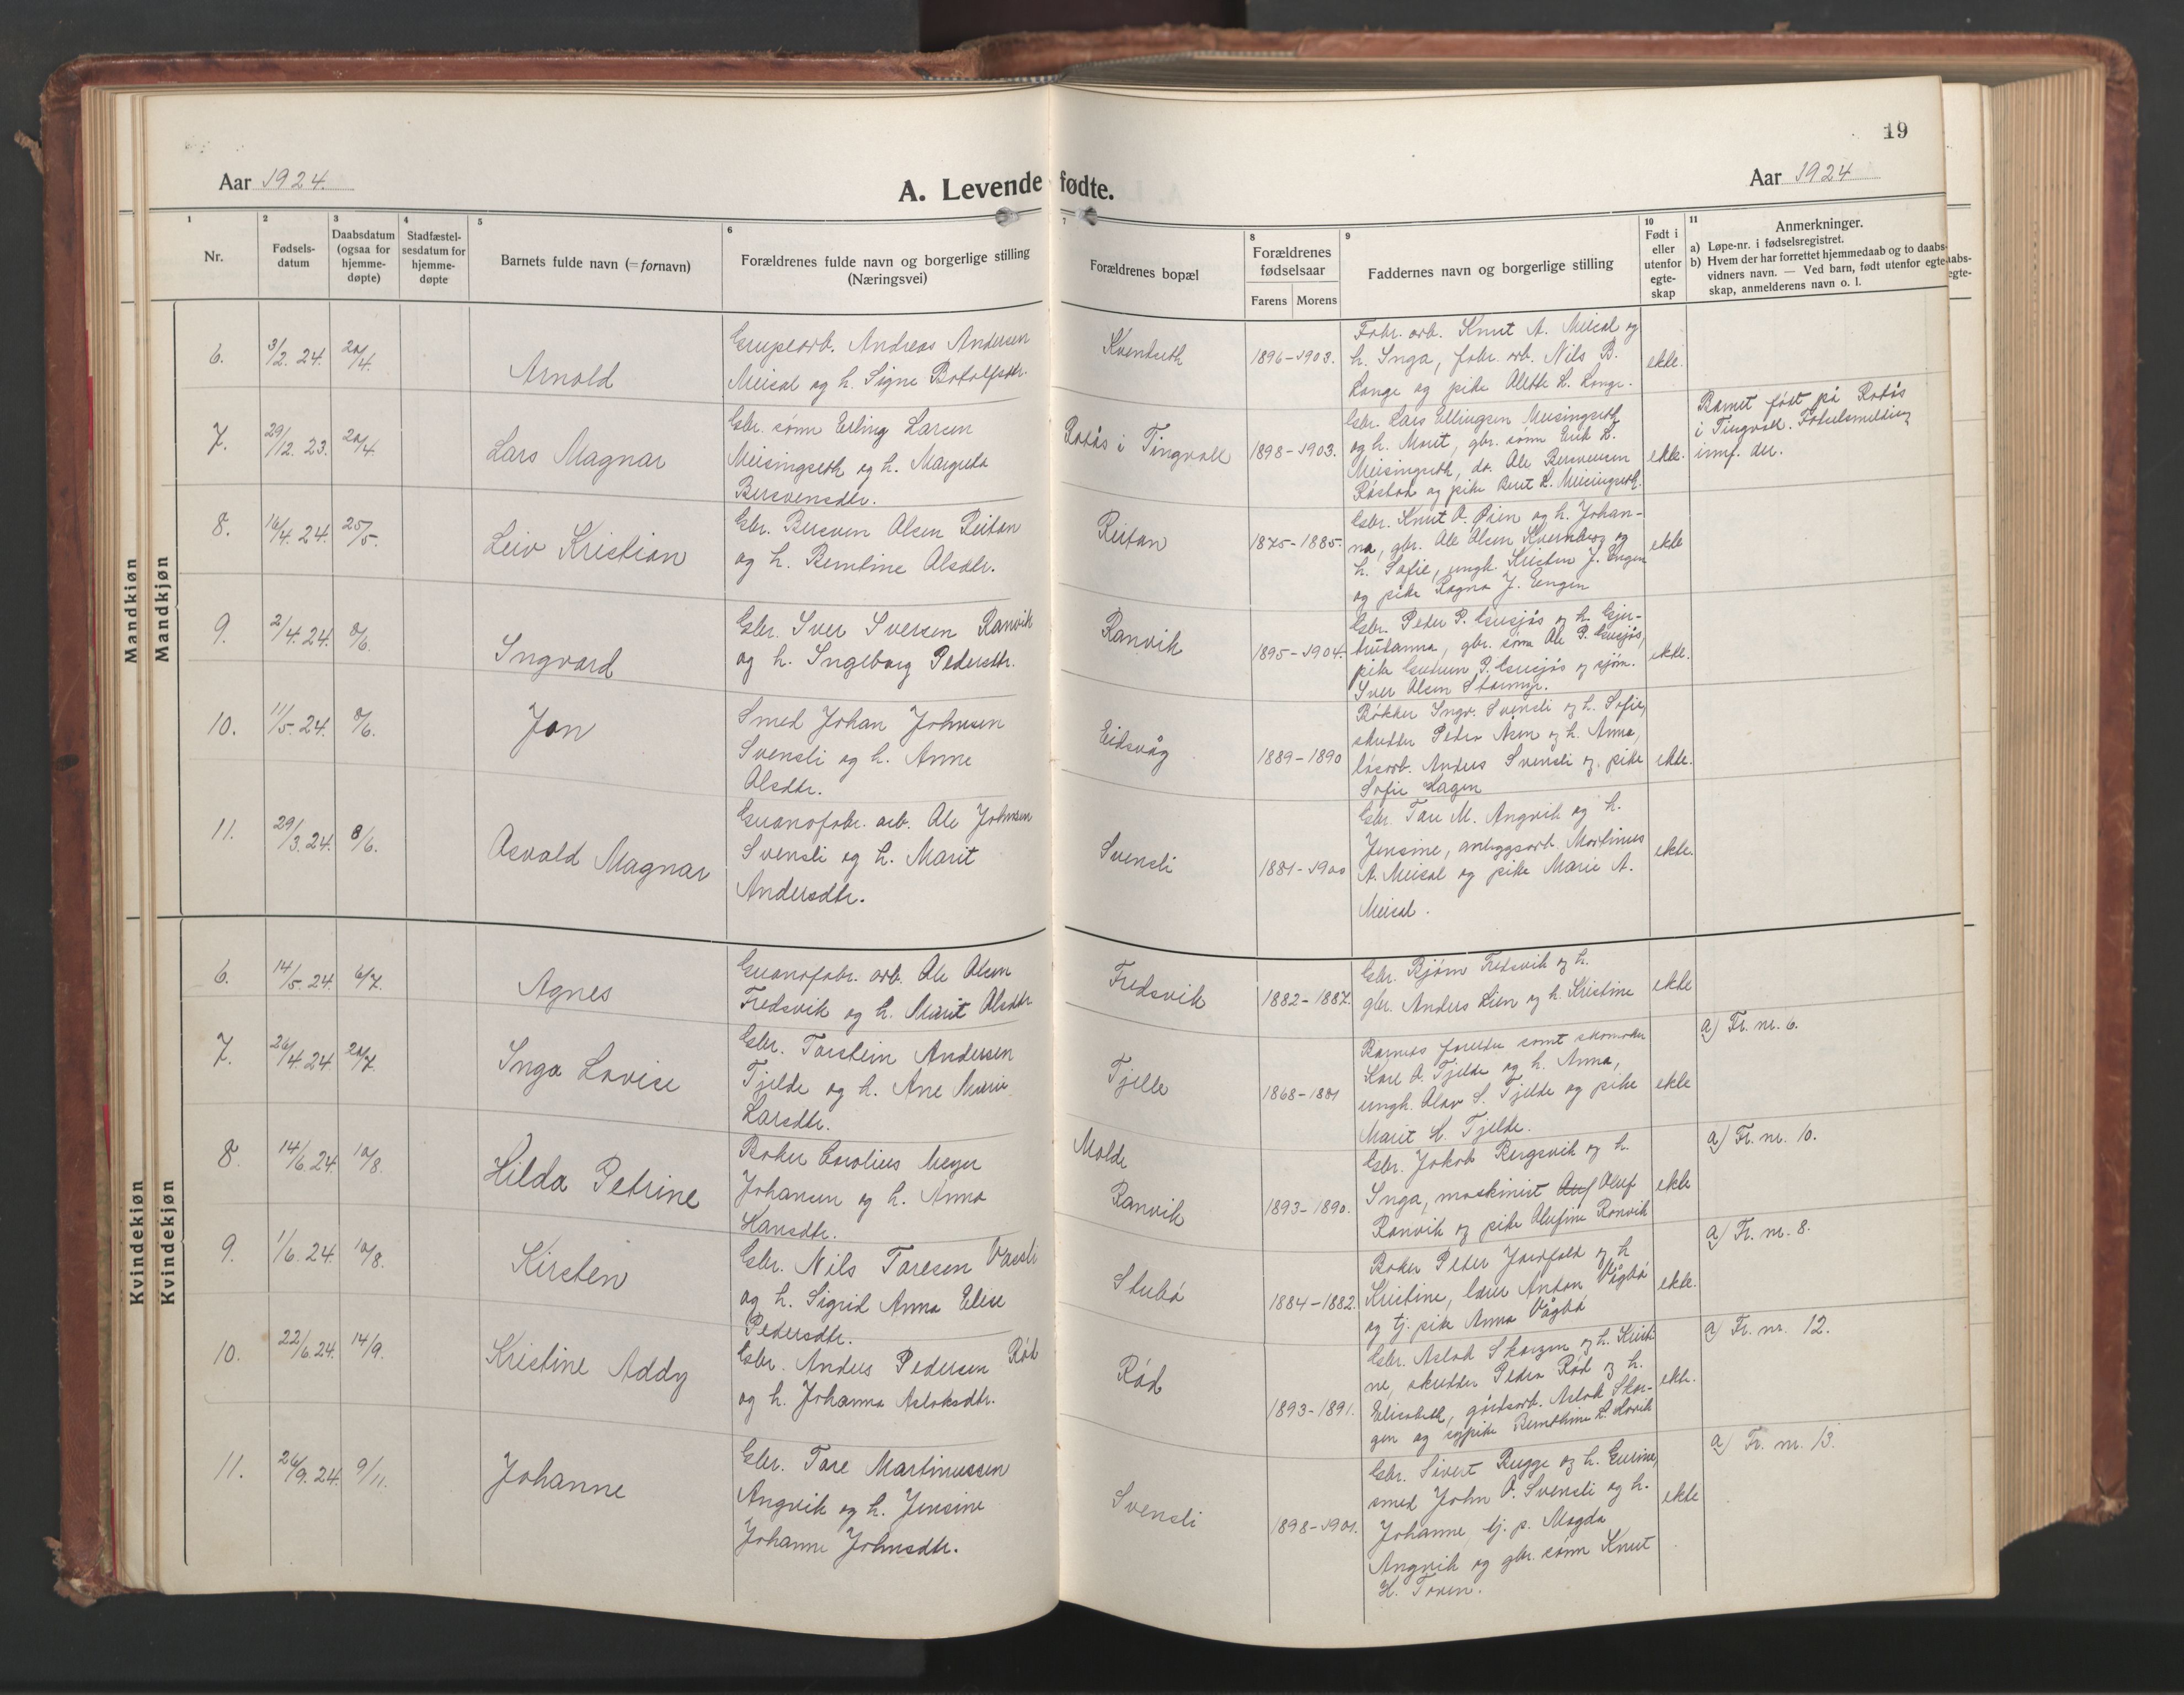 19
Aar 1924.
A. Levende fødte.
Aar 1924
1 2 3 4 5 6 7 8 9 10 11
Nr.
Fødsels-
datum
Daabsdatum
(ogsaa for
hjemme-
døpte)
Stadfæstel-
sesdatum for
hjemme-
døpte
Barnets fulde navn (= fornavn)
Forældrenes fulde navn og borgerlige stilling
(Næringsvei)
Forældrenes bopæl
Forældrenes
fødselsaar
Farens Morens
Faddernes navn og borgerlige stilling
Født i
eller
utenfor
egte-
skap
Anmerkninger.
a) Løpe-nr. i fødselsregistret.
b) Hvem der har forrettet hjemmedaab og to daabs-
vidners navn. — Ved barn, født utenfor egte-
skap, anmelderens navn o. l.
aabs-
egte-
Mandkjøn
Mandkjøn
6. 3/2. 24. 20/4. Arnold
Grupearb. Andreas Andersen
Meisal og h. Signe Botolfsdtr.
Kvendseth
1896-1903.
Fabr. arb. Knut A. Meisal og
h. Inga, fabr. arb. Nils B.
Lange og pike Alette L. Lange.
ekte.
7. 29/12. 23. 20/4. Lars Magnar
Gbr. sønn Erling Larsen
Meisingseth og h. Margreta
Bersvensdtr.
Rotås i Tingvoll
1898-1903.
Gbr. Lars Ellingsen Meisingseth
og h. Marit, gbr. sønn Erik L.
Meisingseth, do. Ole Bersvensen
Røstad og pike Beret L. Meisingseth.
ekte.
Barnet født på Rotås
i Tingvoll. Fødselsmelding
innf. der.
8. 16/4. 24. 25/5. Leiv Kristian
Gbr. Bersven Olsen Reitan
og h. Berntine Olsdtr.
Reitan
1875-1885.
Gbr. Knut O. Øien og h. Johan-
na, gbr. Ole Olsen Kvernberg og
h. Sofie, ungk. Kristen J. Engen
og pike Ragna J. Engen
ekte
9. 2/4. 24. 8/6. Ingvard
Gbr. Iver Iversen Ranvik
og h. Ingeborg Pedersdtr.
Ranvik
1895-1904.
Gbr. Peder P. Gusjås og h. Gjer-
trudanna, gbr. sønn Ole P. Gusjås,
pike Gudrun P. Gusjås og sjøm.
Iver Olsen Stormyr.
ekte.
10. 11/5. 24. 8/6. Jon
Smed Johan Johnsen
Svensli og h. Anne
Olsdtr.
Eidsvåg
1889-1890
Bøkker Ingv. Svensli og h. Sofie,
skredder Peder Åsen og h. Anna,
løsarb. Anders Svensli og pike
Sofie Hagen
ekte.
11. 29/3. 24. 8/6. Osvald Magnar
Guanofabr. arb. Ole Johnsen
Svensli og h. Marit
Andersdtr.
Svensli
1881-1900
Gbr. Tore M. Angvik og h.
Jensine, anleggsarb. Martinus
A. Meisal og pike Marie A.
Meisal.
ekte.
Kvindekjøn
Kvindekjøn
6. 14/5. 24. 6/7. Agnes
Guanofabr. arb. Ole Olsen
Fredsvik og h. Marit Olsdtr.
Fredsvik
1882-1887.
Gbr. Bjørn Fredsvik og h.
gbr. Anders Lien og h. Kristine
ekte
7. 26/4. 24. 20/7. Inga Lovise
Gbr. Torstein Andersen
Tjelde og h. Ane Marie
Larsdtr.
Tjelle
1868-1881
Barnets foreldre samt skomaker
Karl O. Tjelde og h. Anna,
ungk. Olav S. Tjelde og pike
Marit H. Tjelde.
ekte
a) Fr. nr. 6.
8. 14/6. 24. 10/8. Hilda Petrine
Baker Carolius Meyer
Johansen og h. Anna
Hansdtr.
Molde
Ranvik
1893-1890.
Gbr. Jakob Bergsvik og h.
Inga, maskinist Oluf
Ranvik og pike Olufine Ranvik
ekte
a) Fr. nr. 10.
9. 1/6. 24. 10/8. Kirsten
Gbr. Nils Toresen Vassli
og h. Sigrid Anna Elise
Pedersdtr.
Stubø
1884-1882.
Baker Peder Jarfald og h
Kristine, lærer Anton Vågbø
og tj. pike Anna Vågbø
ekte.
a) Fr. nr. 8.
10. 22/6. 24. 14/9. Kristine Addy
Gbr. Anders Pedersen Rød
og h. Johanna Aslaksdtr.
Rød
1893-1891.
Gbr. Aslak Skorgen og h. Kristi-
ne, skredder Peder Rød og h.
Elisabeth, gårdsarb. Aslak Skor-
gen og sypike Bernthine L. Hovik
ekte.
a) Fr. nr. 12.
11. 26/9. 24. 9/11. Johanne
Gbr. Tore Martinussen
Angvik og h. Jensine
Johanne Johnsdtr.
Svensli
1898-1901.
Gbr. Sivert Bugge og h. Gurine,
smed John O. Svensli og h.
Johanne, tj. p. Magda
Angvik og gbr. sønn Knut
H. Toven.
ekte
a) Fr. nr. 13.